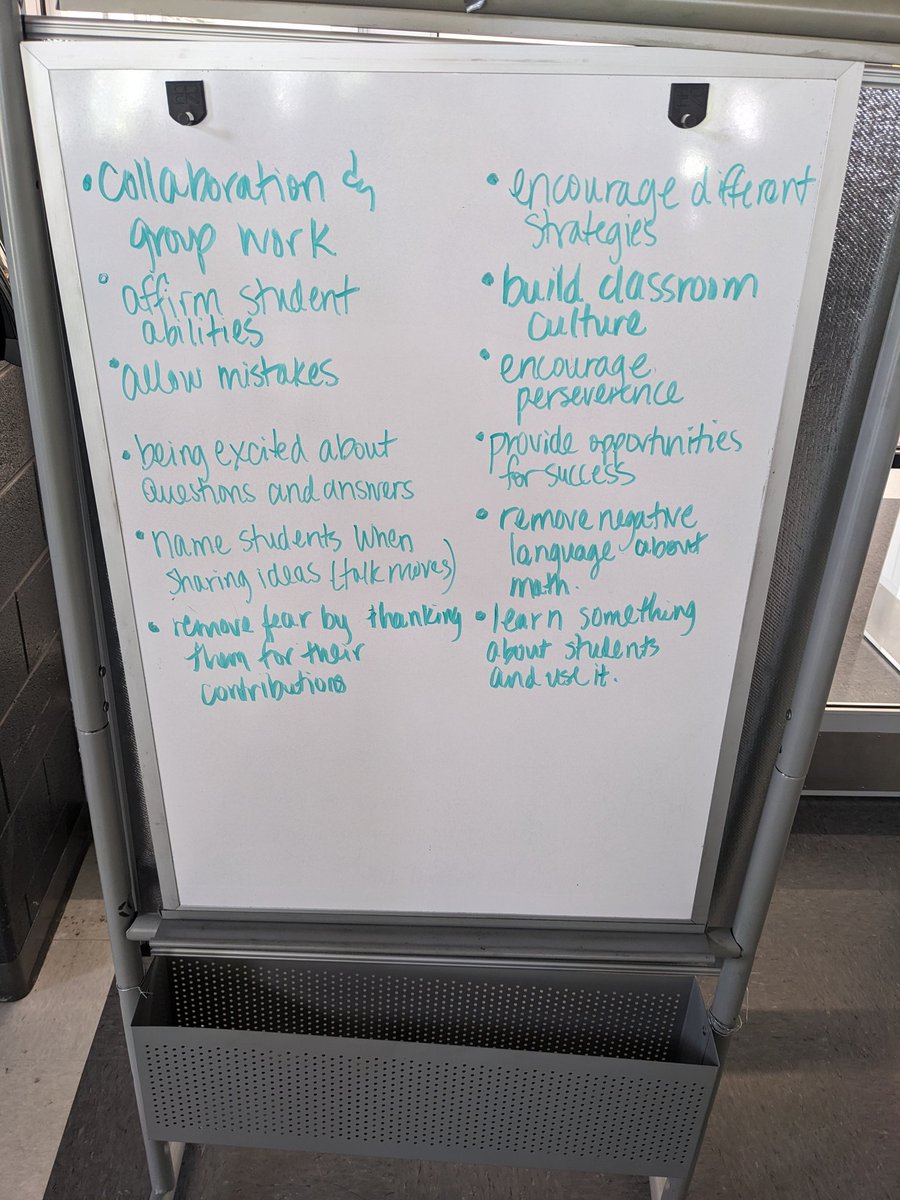 • collaboration &
group work
• affirm student
abilities
• allow mistakes
• being excited about
questions and answers
• name students when
sharing ideas (talk moves)
• remove fear by thanking
them for their
contributions
• encourage different
strategies
• build classroom
culture
• encourage
perseverence
• provide opportunities
for success
• remove negative
language about
math.
• learn something
about students
and use it.